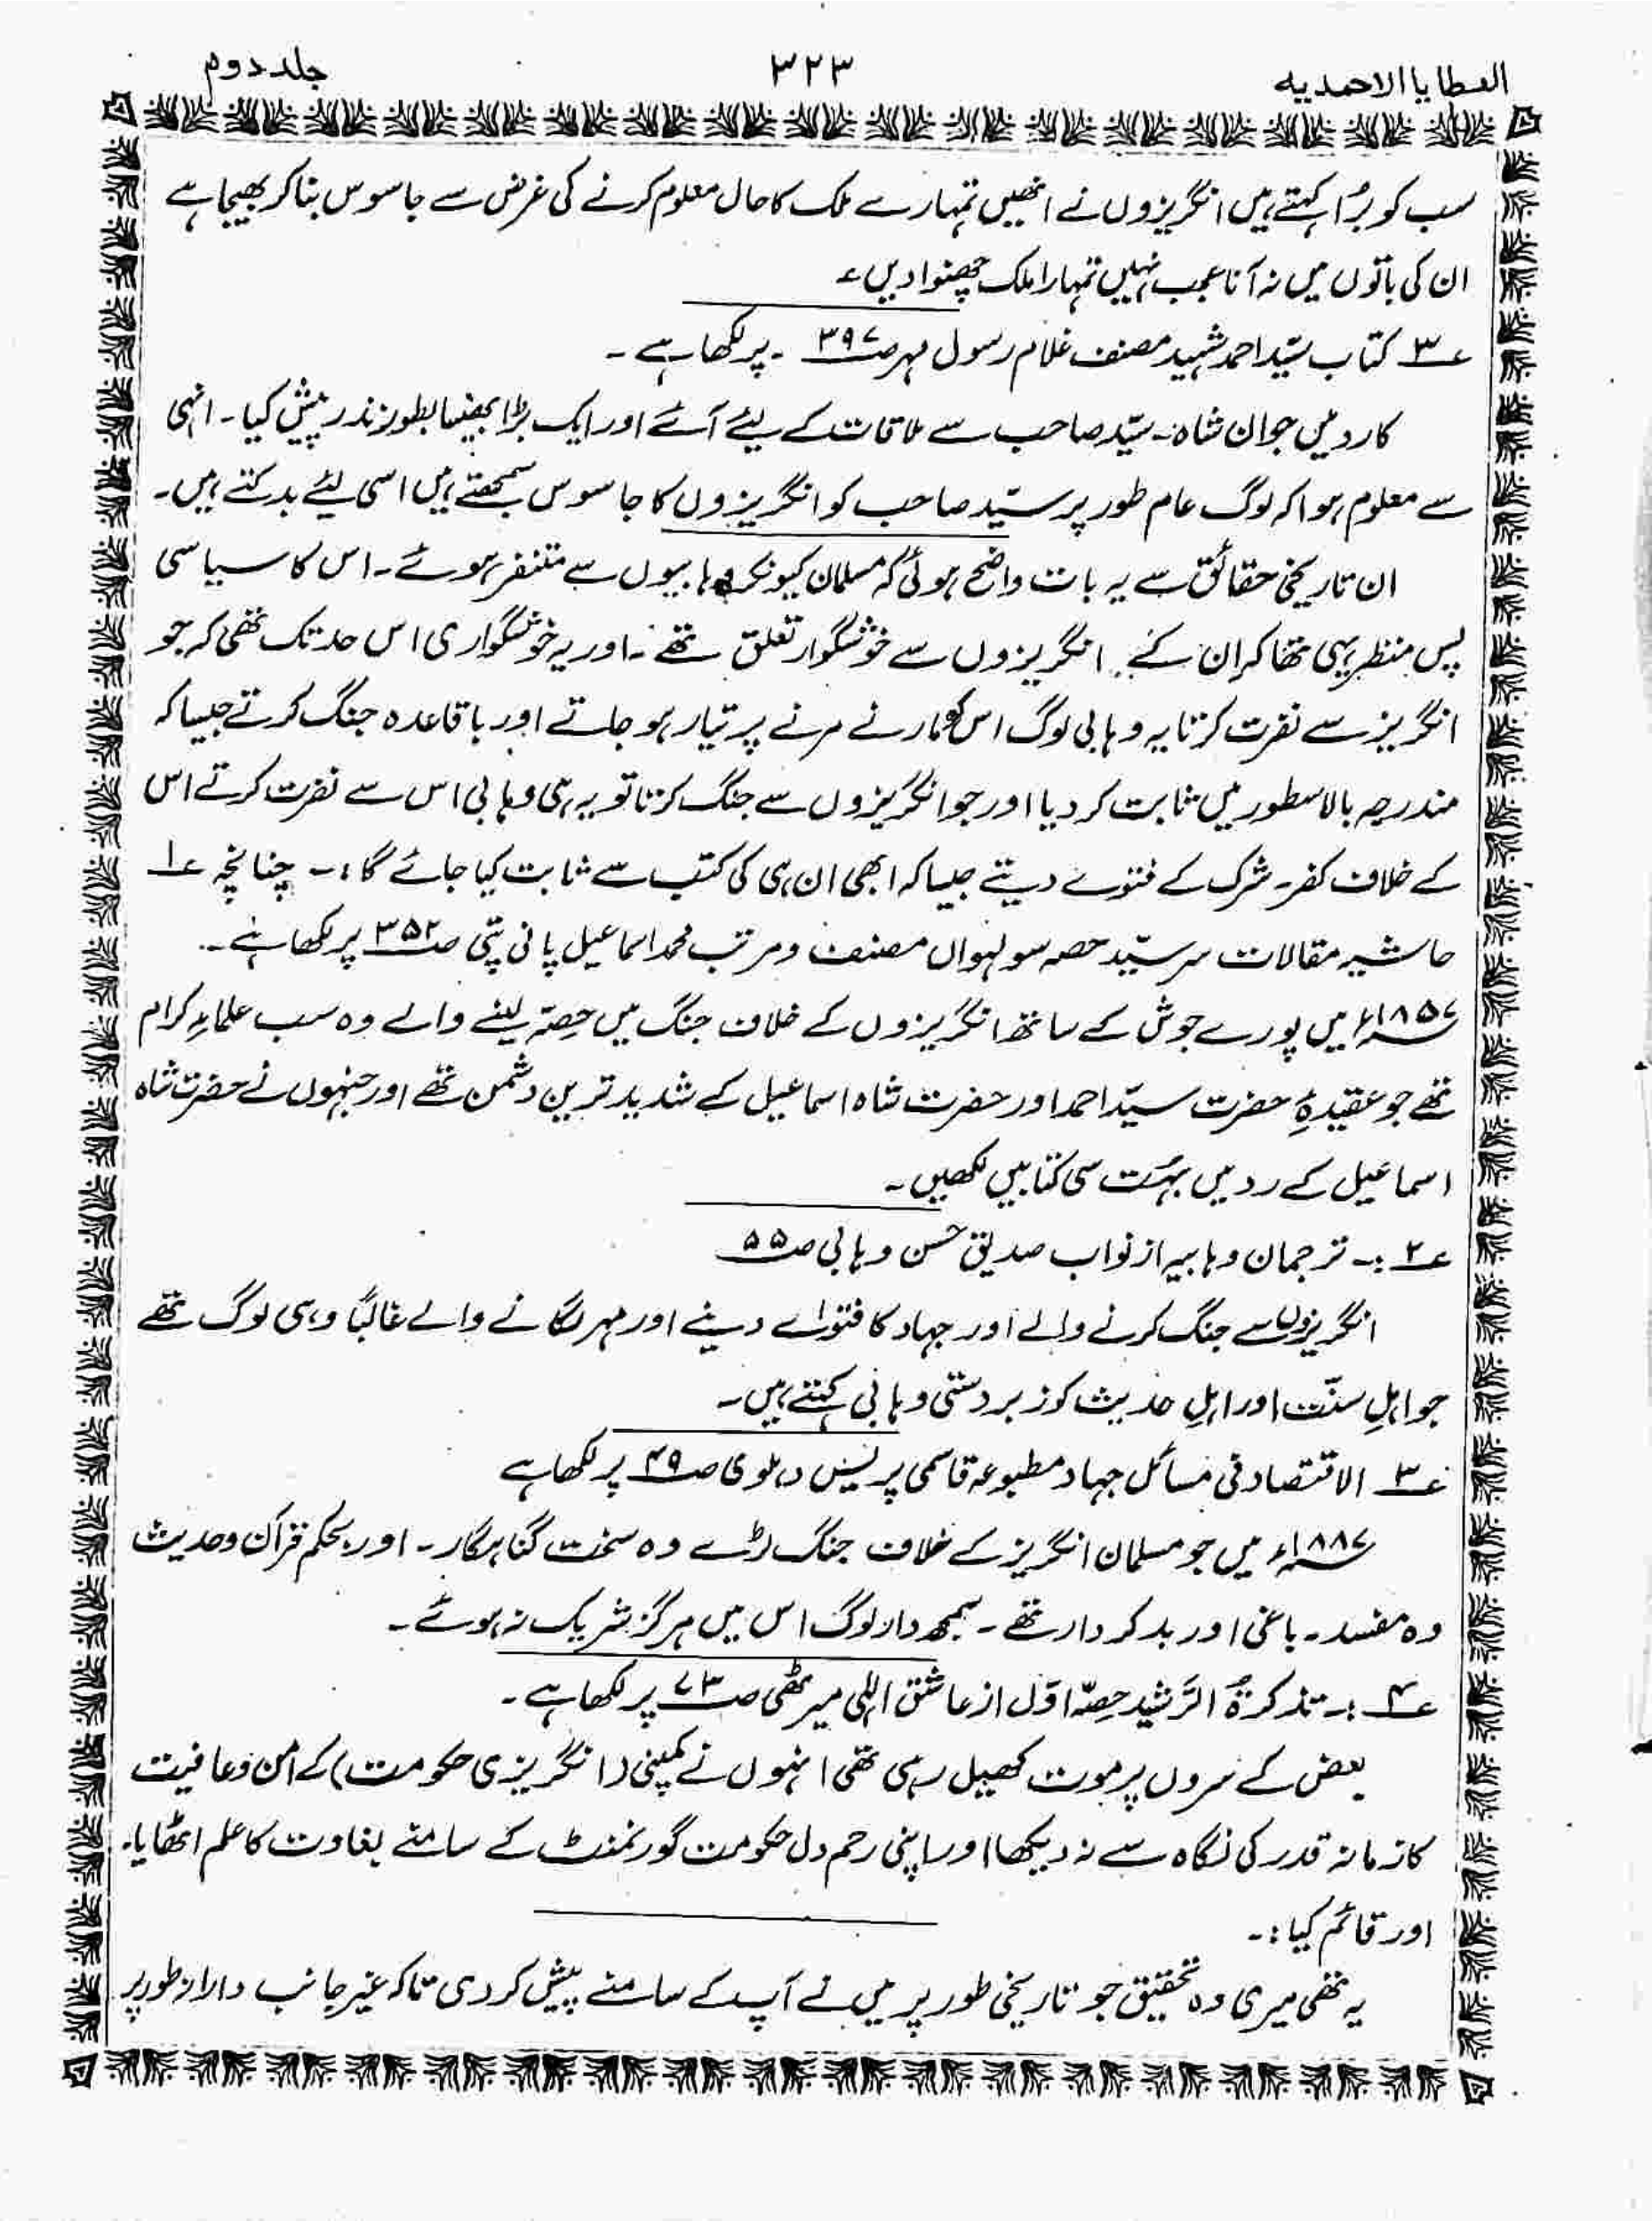 العطایا الاحمدیہ ۳۲۳ جلد دوم
سب کو بُرا کہتے ہیں انگریزوں نے انھیں تمہارے ملک کا حال معلوم کرنے کی غرض سے جاسوس بنا کر بھیجا ہے
ان کی باتوں میں نہ آنا عجب نہیں تمہارا ملک چھنوا دیں ۔
ع۳ کتاب سیّد احمد شہید مصنف غلام رسول مہر صـ۳۹۷ ۔ پر لکھا ہے ۔
کارد میں جوان شاہ ۔ سیّد صاحب سے ملاقات کے لیئے آئے اور ایک بڑا بھینسا بطور نذر پیش کیا ۔ انہی
سے معلوم ہوا کہ لوگ عام طور پر سیّد صاحب کو انگریزوں کا جاسوس سمجھتے ہیں اسی لیئے بدکتے ہیں ۔
ان تاریخی حقائق سے یہ بات واضح ہوئی کہ مسلمان کیونکر وہابیوں سے متنفر ہوئے ۔ اس کا سیاسی
پس منظر یہی تھا کہ ان کے انگریزوں سے خوشگوار تعلق تھے ۔ اور یہ خوشگواری اس حد تک تھی کہ جو
انگریز سے نفرت کرتا یہ وہابی لوگ اس کو مارنے مرنے پر تیار ہو جاتے اور باقاعدہ جنگ کرتے جیسا کہ
مندرجہ بالا سطور میں ثابت کر دیا اور جو انگریزوں سے جنگ کرتا تو یہ ہی وہابی اس سے نفرت کرتے اس
کے خلاف کفر ۔ شرک کے فتوے دیتے جیسا کہ ابھی ان ہی کی کتب سے ثابت کیا جائے گا :۔ چنانچہ ع۱
حاشیہ مقالات سرسیّد حصہ سولہواں مصنف و مرتب محمد اسماعیل پانی پتی صـ۳۵۲ پر لکھا ہے ۔
۱۸۵۷ء میں پورے جوش کے ساتھ انگریزوں کے خلاف جنگ میں حصّہ لینے والے وہ سب علماءِ کرام
تھے جو عقیدۂِ حضرت سیّد احمد اور حضرت شاہ اسماعیل کے شدید ترین دشمن تھے اور جنہوں نے حضرت شاہ
اسماعیل کے رد میں بہُت سی کتابیں لکھیں ۔
ع۲ :۔ ترجمان وہابیہ از نواب صدیق حسن وہابی صـ۵۵
انگریزوں سے جنگ کرنے والے اور جہاد کا فتوٰے دینے اور مہر لگانے والے غالباً وہی لوگ تھے
جو اہلِ سنّت اور اہلِ حدیث کو زبردستی وہابی کہتے ہیں ۔
ع۳ الاقتصاد فی مسائل جہاد مطبوعہ قاسمی پریس دہلوی صـ۴۹ پر لکھا ہے
۱۸۸۷ء میں جو مسلمان انگریز کے خلاف جنگ لڑے وہ سخت گناہگار ۔ اور بحکم قرآن و حدیث
وہ مفسد ۔ باغی اور بد کردار تھے ۔ سمجھ دار لوگ اس میں ہرگز شریک نہ ہوئے ۔
ع۴ :۔ تذکرۃُ الرَّشید حِصّہ اوّل از عاشق الٰہی میرٹھی صـ۷۳ پر لکھا ہے ۔
بعض کے سروں پر موت کھیل رہی تھی انہوں نے کمپنی (انگریزی حکومت) کے امن و عافیت
کا زمانہ قدر کی نگاہ سے نہ دیکھا اور اپنی رحم دل حکومت گورنمنٹ کے سامنے بغاوت کا علم اٹھایا ۔
اور قائم کیا :۔
یہ تھی میری وہ تحقیق جو تاریخی طور پر میں نے آپ کے سامنے پیش کر دی تاکہ غیر جانب دارانہ طور پر